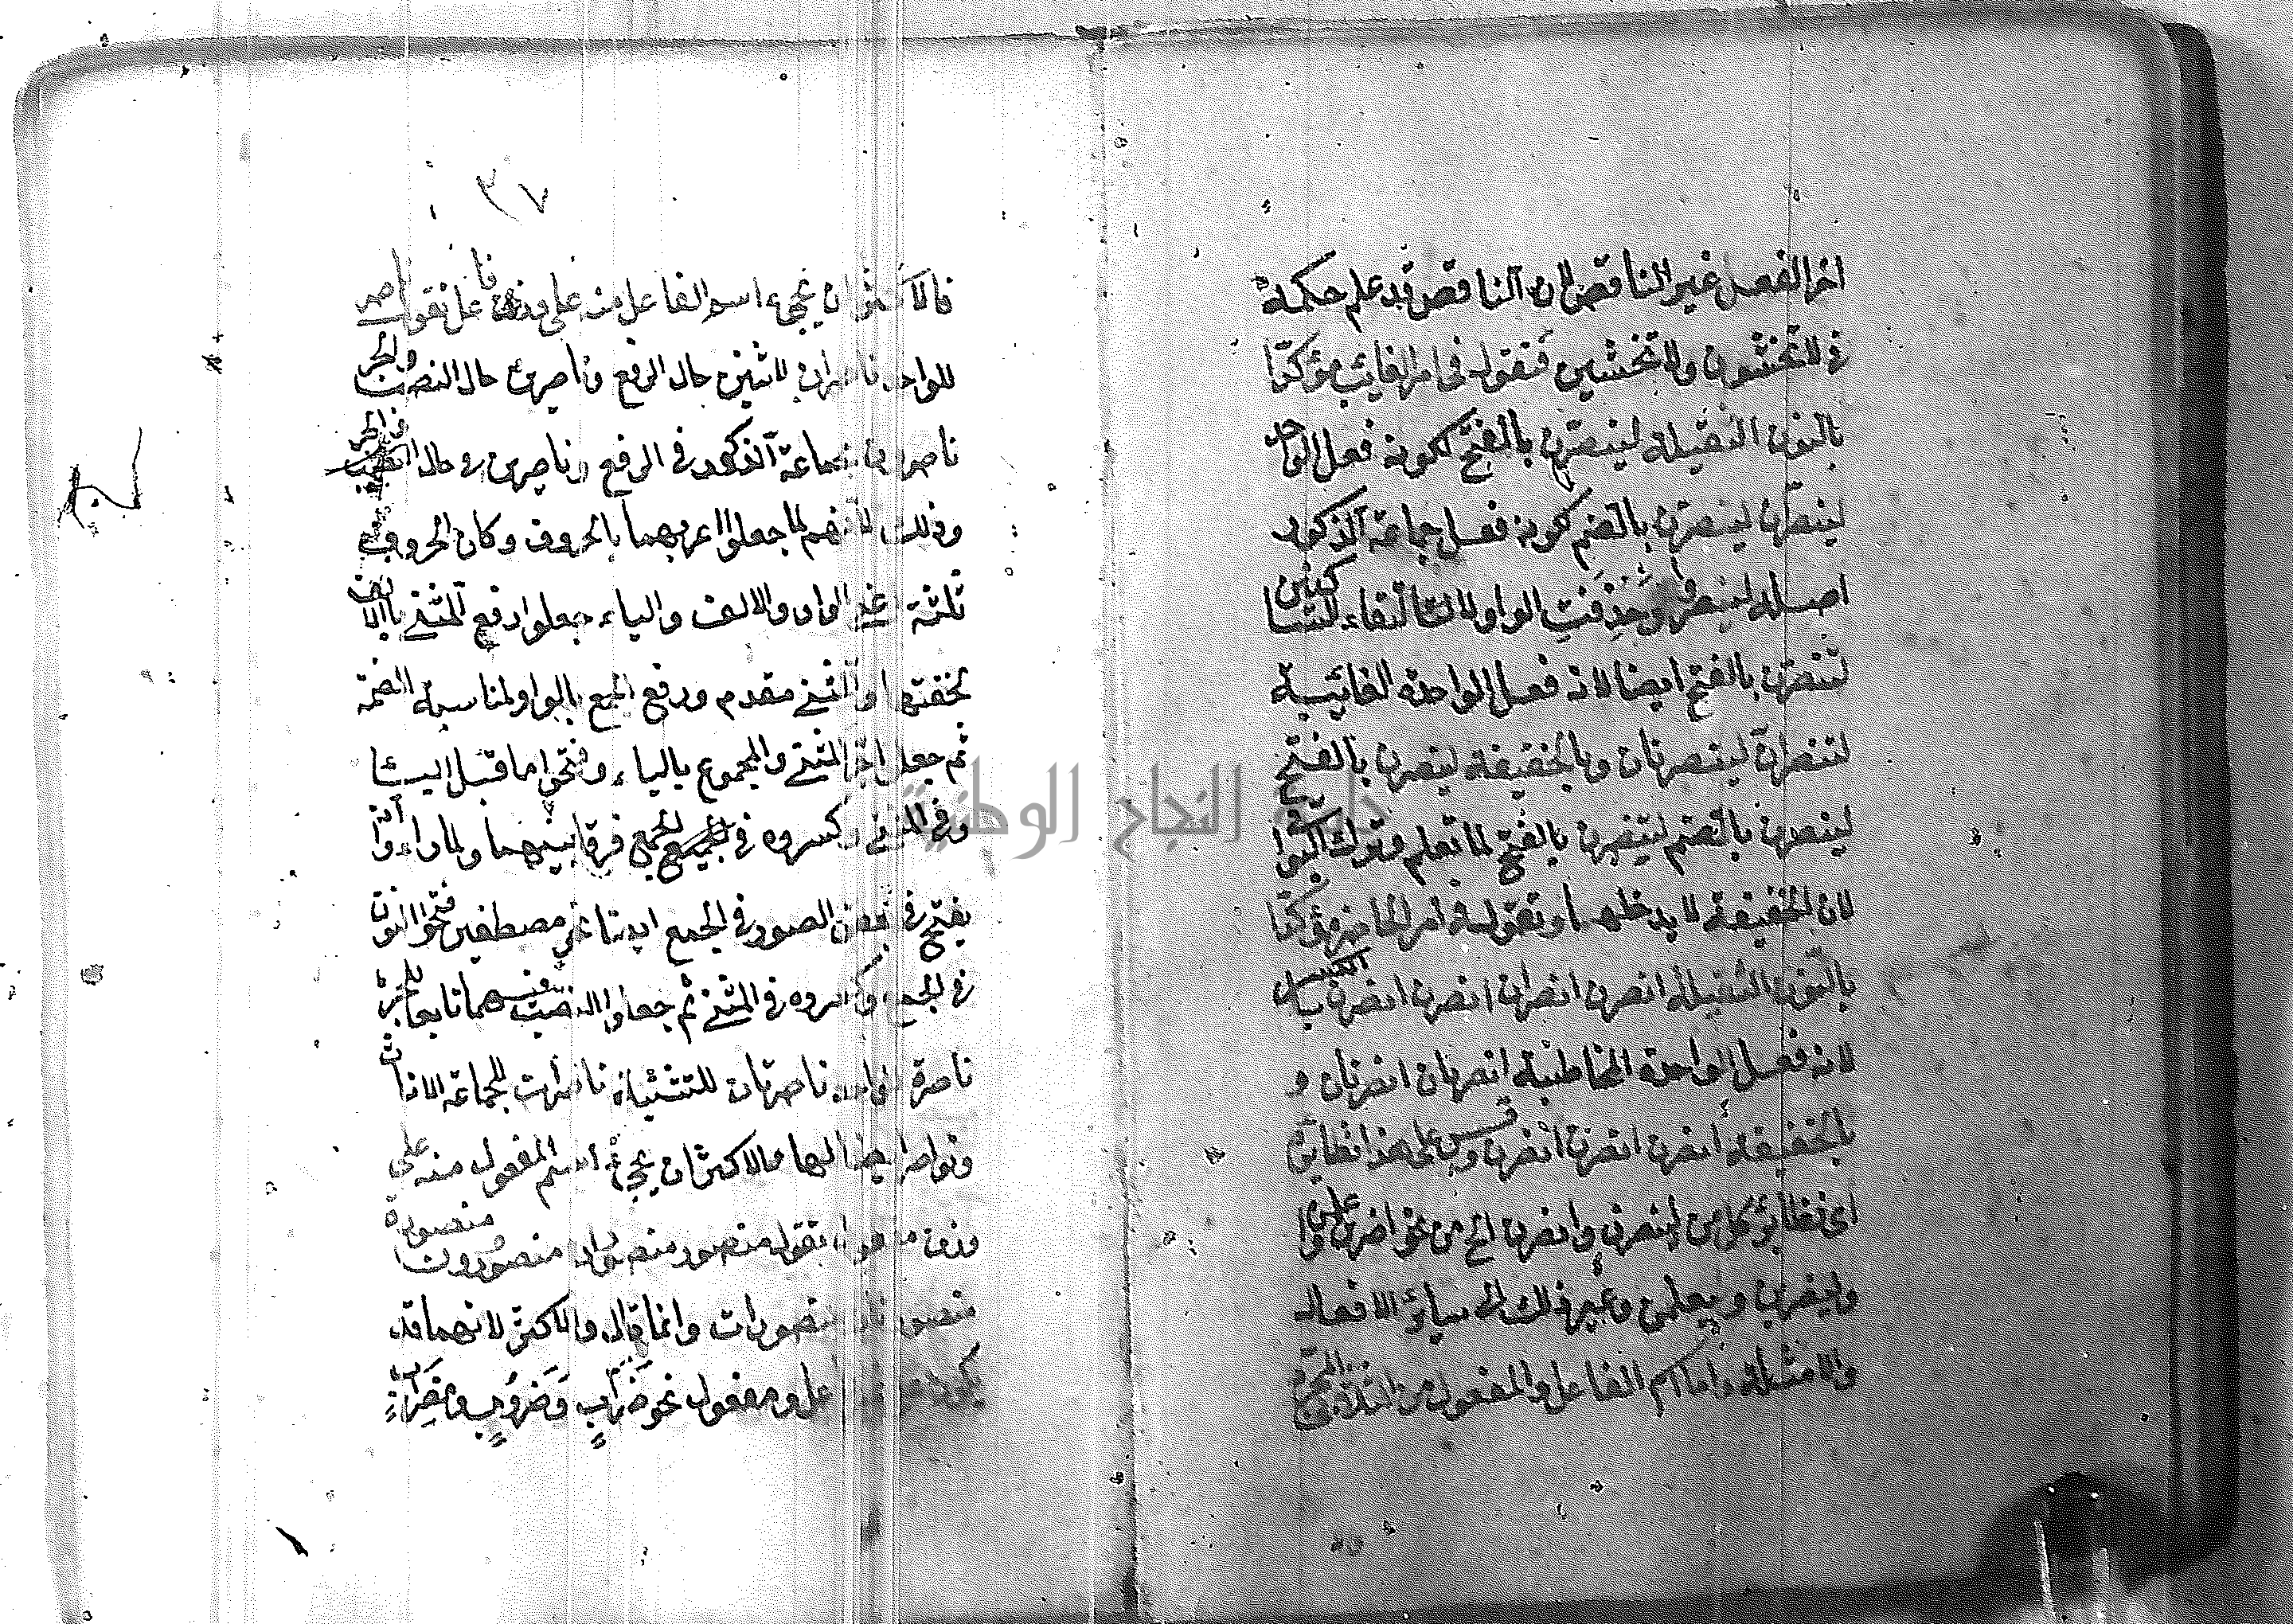 اخر الفعل غير الناقص لان الناقص قد علم حكمه
في لا تخشون ولا تخشين فتقول في امر الغايب مؤكدا
بالنون الثقيلة لينصرن بالفتح لكونه فعل الواحد
لينصران لينصرن بالضم لكونه فعل جماعة الذكور
اصله لينصرون حذفت الواو لالتقاء الساكنين
لتنصرن بالفتح ايضا لانه فعل الواحدة الغائبة
لتنصران لينصرنان وبالخفيفة لينصرن بالفتح
لينصرن بالضم لتنصرن بالفتح لما تعلم وترك البواقي
لان الخفيفة لا يدخلها وتقول في امر الحاضر مؤكدا
بالنون الثقيلة انصرن انصران انصرن انصرن بالكسر
لانه فعل الواحدة المخاطبة انصران انصرنان و
بالخفيفة انصرن انصرن انصرن وقس على هذا نظايره
اى نظائر كل من لينصرن وانصرن الخ من نحو اضربن واعلمن
وليضربن وليعلمن وغير ذلك الى سائر الافعال
والامثلة واما اسم الفاعل والمفعول من الثلاثي المجرد
٣٧
فالاكثر ان يجيء اسم الفاعل منه على وزن فاعل تقول ناصر
للواحد ناصران للاثنين حال الرفع وناصرين حال النصب والجر
ناصرون لجماعة الذكور في الرفع وناصرين في حال النصب والجر
وذلك لانهم لما جعلوا اعرابهما بالحروف وكان الحروف
ثلثة اعنى الواو والالف والياء جعلوا رفع المثنى بالالف
لخفتها والمثنى مقدم ورفع الجمع بالواو لمناسبة الضمة
ثم جعلوا جر المثنى والمجموع بالياء وفتحوا ما قبل الياء
وفى المثنى وكسروه في الجمع فرقا بينهما ولما راوا
يفتح في بعض الصور في الجمع ايضا نحو مصطفين فتحوا النون
في الجمع وكسروه في المثنى ثم جعلوا النصب فيهما تابعا للجر
ناصرة للواحدة ناصرتان للتثنية ناصرات لجماعة الاناث
ونواصر ايضا لها والاكثر ان يجيء اسم المفعول منه على
وزن مفعول تقول منصور منصوران منصورون منصورة
منصورتان منصورات وانما قال والاكثر لانهما قد
يكونان على غير فاعل ومفعول نحو ضراب وضروب ومضراب
جامعة النجاح الوطنية